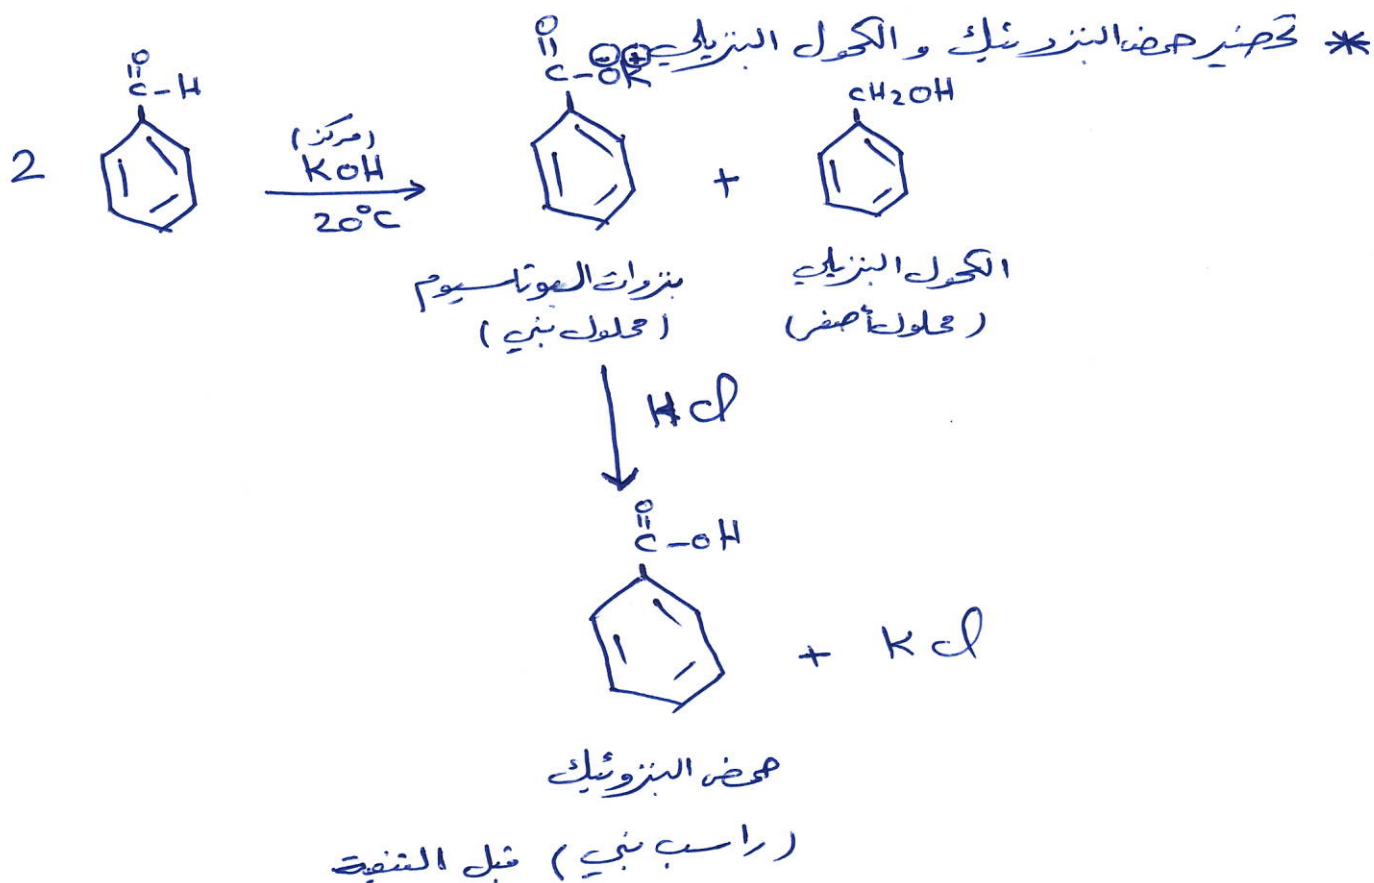 * تحضير حمض البنزوئيك و الكحول البنزيلي
O
C-H
O
C-OK
⊖⊕
CH2OH
2
(مركز)
KOH
20°C
+
بنزوات البوتاسيوم
(محلول بني)
الكحول البنزيلي
(محلول أصفر)
HCl
O
C-OH
+ KCl
حمض البنزوئيك
(راسب بني) قبل التنقية